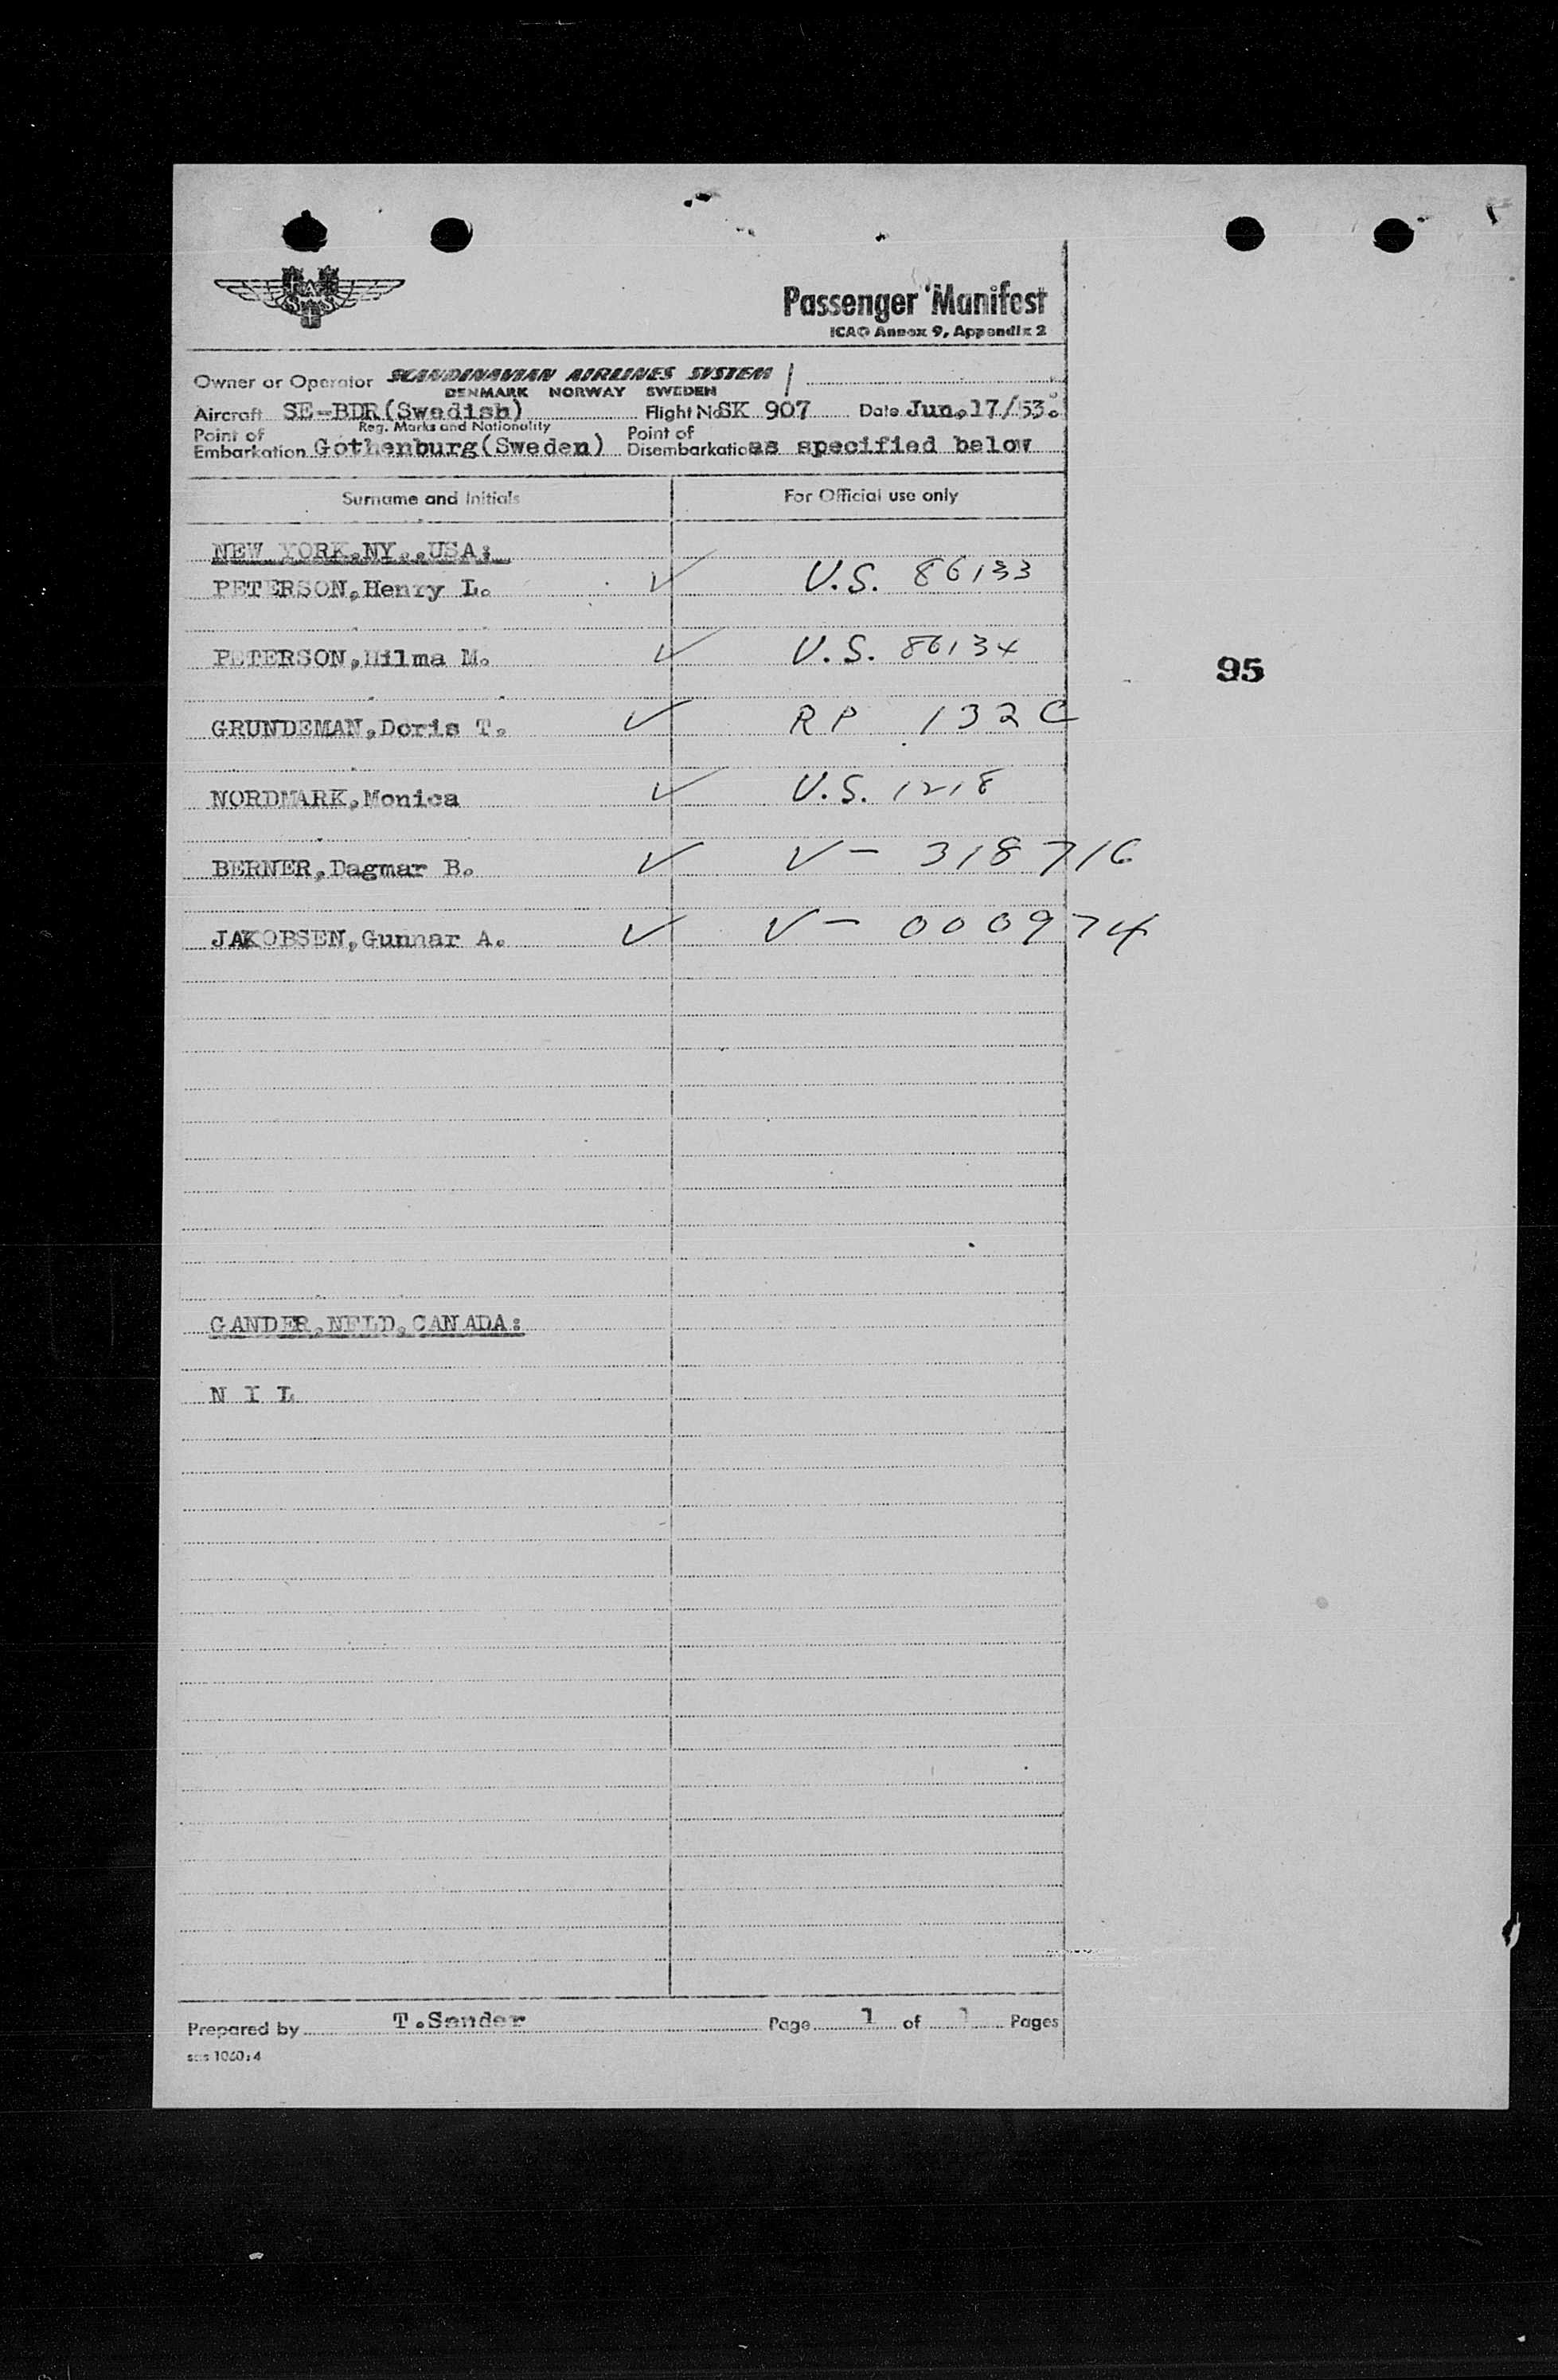 Passenger Manifest
ICAO Annex 9, Appendix 2
Owner or Operator SCANDINAVIAN AIRLINES SYSTEM
DENMARK NORWAY SWEDEN
Aircraft SE-BDR(Swedish) Flight No SK 907 Date Jun.17/53.
Reg. Marks and Nationality
Point of Embarkation Gothenburg(Sweden) Point of Disembarkation as specified below
Surname and Initials For Official use only
NEW YORK,NY.,USA:
PETERSON,Henry L. U.S. 86133
PETERSON,Hilma M. U.S. 86134
95
GRUNDEMAN,Doris T. RP 132C
NORDMARK,Monica U.S. 1218
BERNER,Dagmar B. V- 318716
JAKOBSEN,Gunnar A. V- 000974
GANDER,NFLD,CANADA:
N I L
Prepared by T.Sander Page 1 of 1 Pages
sas 1060:4